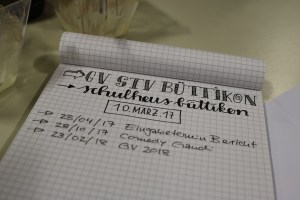 ⇒ GV STV BÜTTIKON
→ schulhaus büttikon
10. MÄRZ. 17
→ 23/04/17 Eingabetermin Bericht
→ 28/10/17 Comedy Gaudi
→ 23/02/18 GV 2018